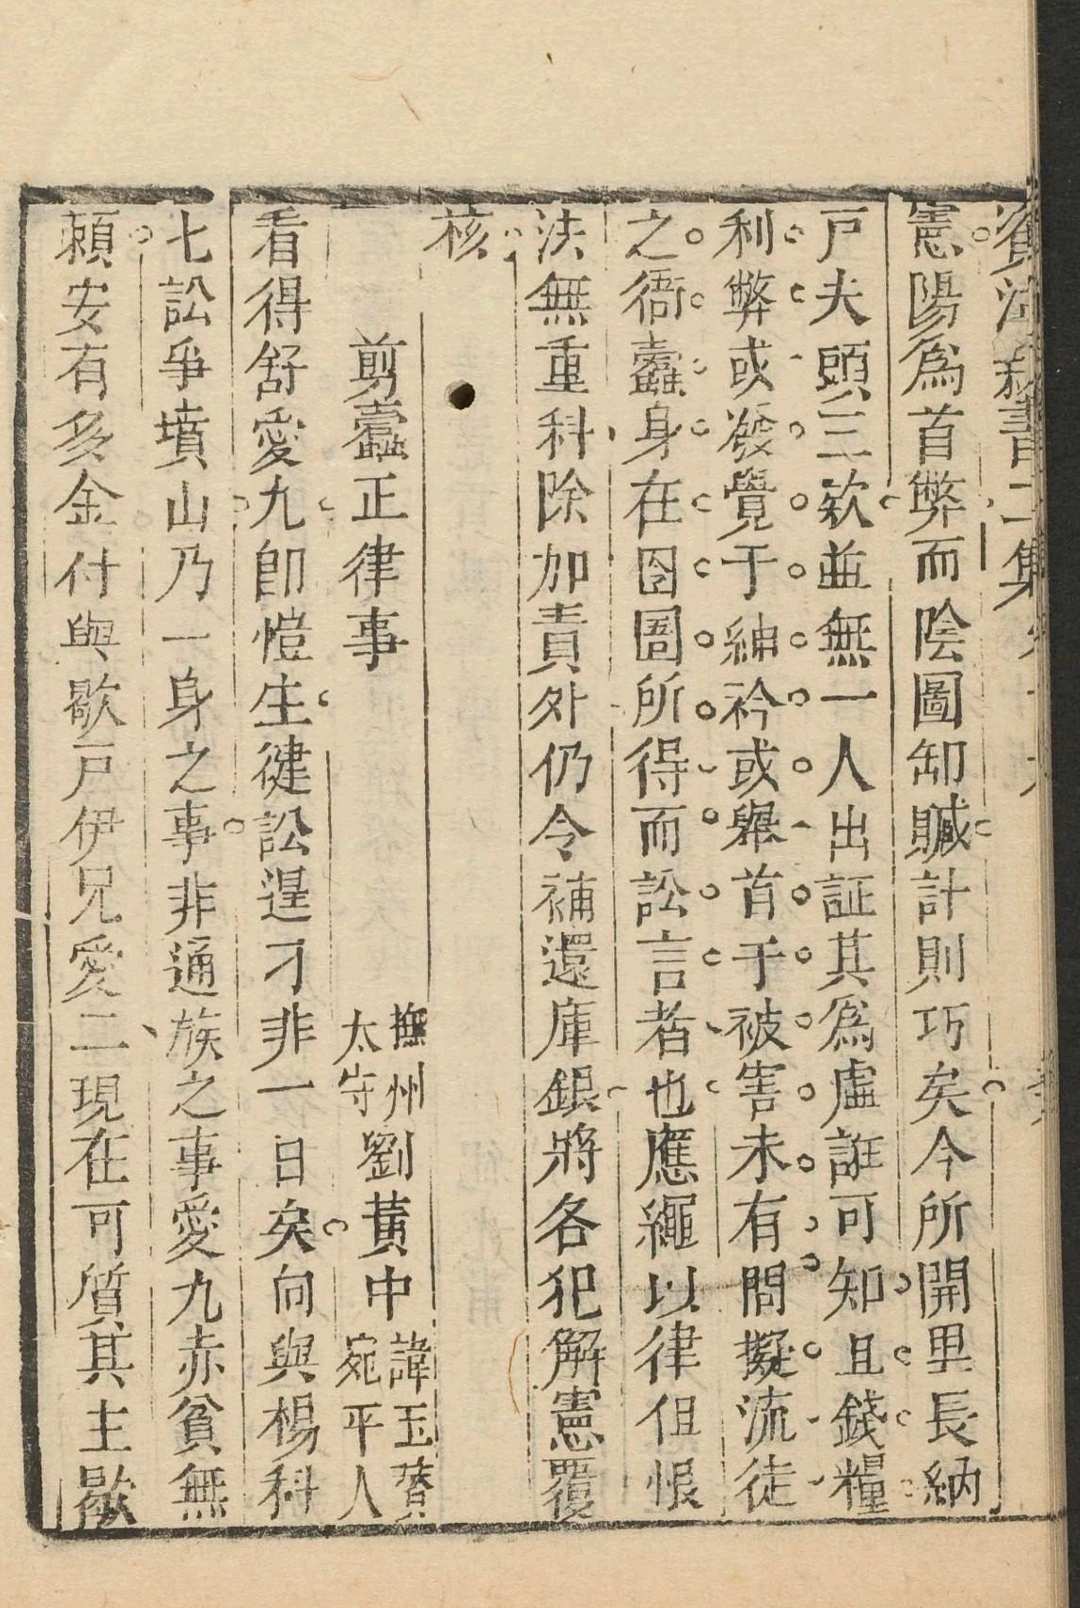 資治新書二集
憲陽為首弊而陰圖卸贓計則巧矣今所開里長納
戸夫頭三欵並無一人出証其為虛誑可知且錢糧
利弊或發覺于紳衿或舉首于被害未有問擬流徒
之衙蠹身在囹圄所得而訟言者也應繩以律但恨
法無重科除加責外仍令補還庫銀將各犯解憲覆
核
剪蠹正律事
撫州太守劉黄中諱玉瓚宛平人
看得舒愛九卽愷生徤訟逞刁非一日矣向與楊科
七訟爭墳山乃一身之事非通族之事愛九赤貧無
頼安有多金付與歇戸伊兄愛二現在可質其主歇